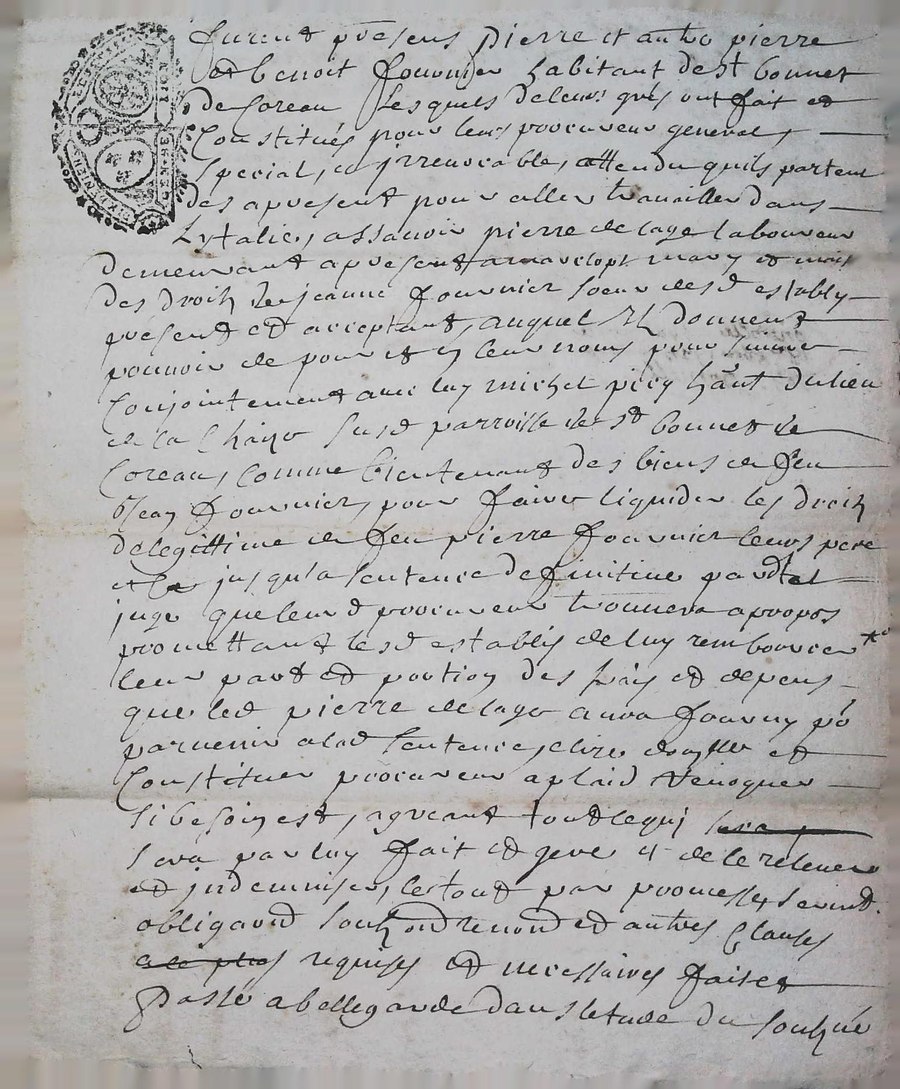 furent p̄sens pierre et autre pierre
et benoit fournier habitant de st bonnet
de Coreau Lesquels de leurs grés ont fait et
Constitués pour leur procureur general,
special, et jrreuocable, attendu quils partent
des apresent pour aller trauailler dans
Lytalie, assauoir pierre delage laboureur
demeurant apresent a mary et
des droits de jeanne fournier soeur desd establys
présent et acceptant, auquel Jls donnent
pouuoir de pour et en leur noms poursuiure
Conjointement auec luy michel picq ha̅nt du lieu
de la Chaize susd parroisse de st bonnet de
Coreau, comme bientenant des biens de feu
fournier, pour faire liquider les droits
de legittime de feu pierre fournier leurs pere
et jusqu'a sentence definitiue pardt tel
juge que leurd procureur trouuera apropos
promettant lesd establis de luy rembourcer
leur part et portion des frais et depens
que led pierre delage aura fourny po
paruenir a lad sentence, elire domlle et
Constituer procureur a plaid reuoquer
si besoin est, agreant tout ce quj sera
sera par luy fait et geré et de le releuer
et jndemniser, le tout par promesses serment
obligaōn et autres Clauses
a ce plus requises et necessaires fait et
Passé a bellegarde dans letude du souszné